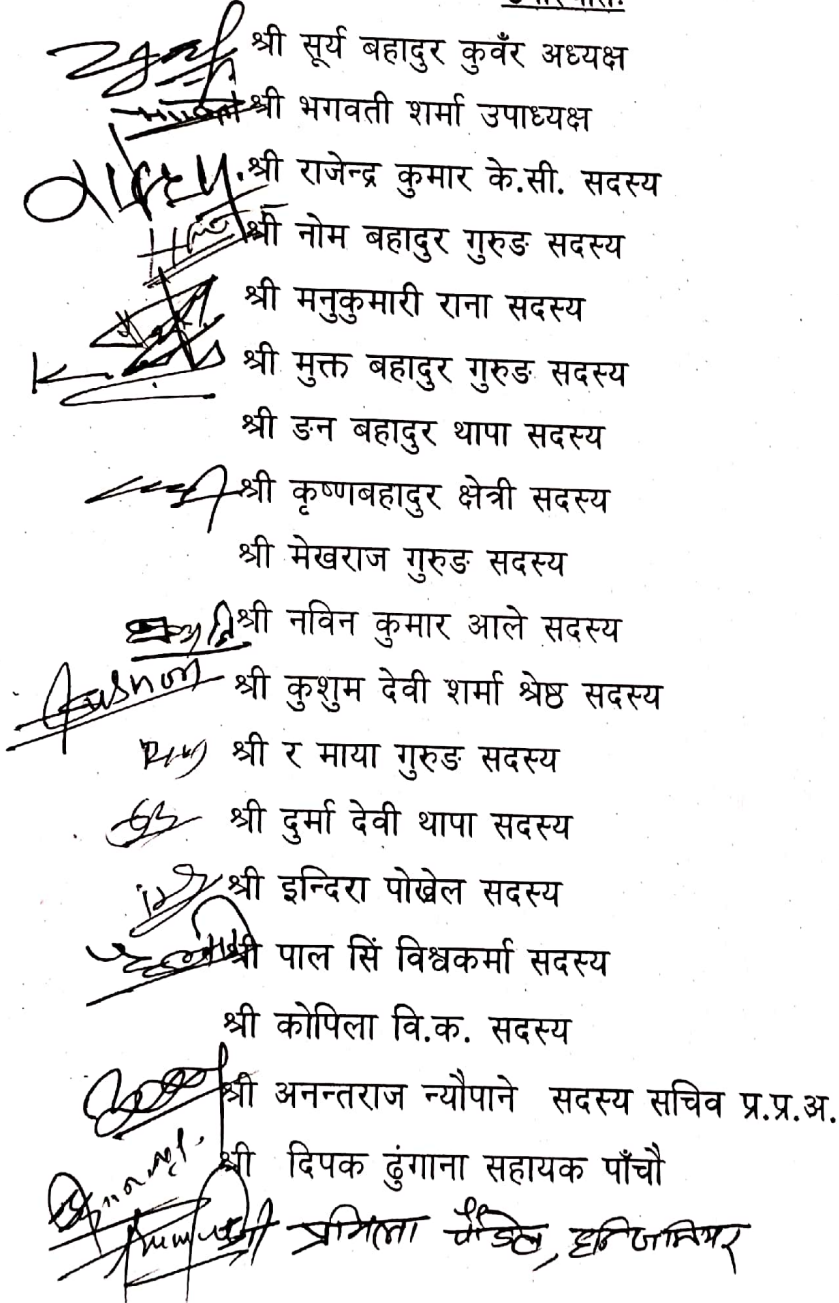 श्री सूर्य बहादुर कुवँर अध्यक्ष
श्री भगवती शर्मा उपाध्यक्ष
श्री राजेन्द्र कुमार के.सी. सदस्य
श्री नोम बहादुर गुरुङ सदस्य
श्री मनुकुमारी राना सदस्य
श्री मुक्त बहादुर गुरुङ सदस्य
श्री ङन बहादुर थापा सदस्य
श्री कृष्णबहादुर क्षेत्री सदस्य
श्री मेखराज गुरुङ सदस्य
श्री नविन कुमार आले सदस्य
श्री कुशुम देवी शर्मा श्रेष्ठ सदस्य
श्री र माया गुरुङ सदस्य
श्री दुर्मा देवी थापा सदस्य
श्री इन्दिरा पोखेल सदस्य
श्री पाल सिं विश्वकर्मा सदस्य
श्री कोपिला वि.क. सदस्य
श्री अनन्तराज न्यौपाने सदस्य सचिव प्र.प्र.अ.
श्री दिपक ढुंगाना सहायक पाँचौ
श्री प्रमिला पौडेल, इन्जिनियर